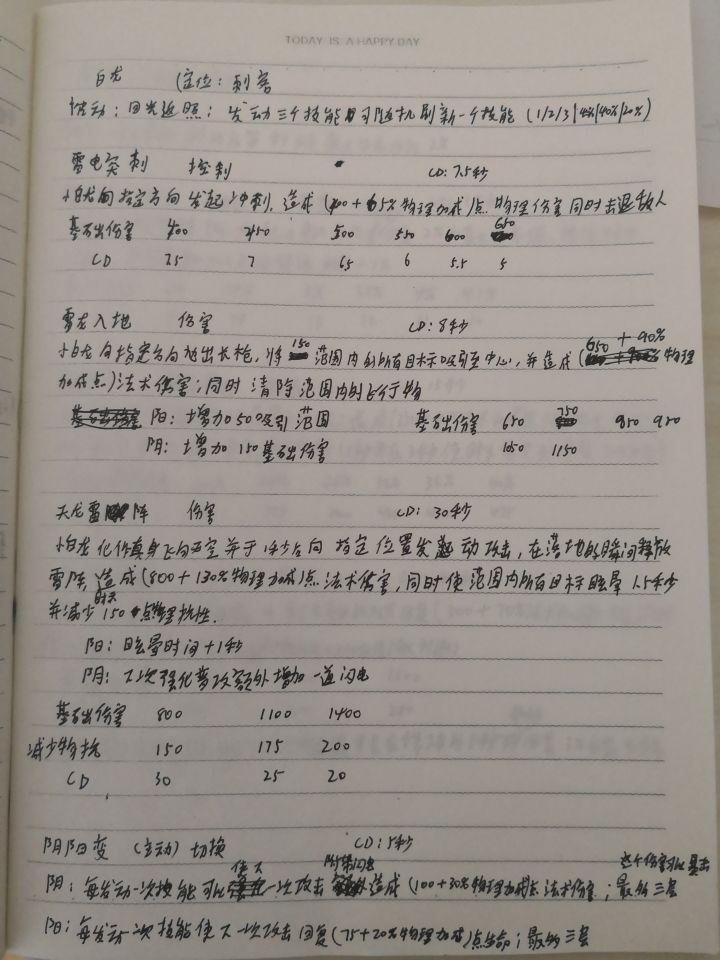 TODAY IS A HAPPY DAY
白龙 (定位:刺客
被动:回光返照:发动三个技能后可随机刷新一个技能 (1/2/3|40%|20%)
雷电突刺 控制 CD:7.5秒
小白龙向指定方向发起冲刺,造成(400+65%物理加成)点物理伤害同时击退敌人
基础伤害 400 450 500 550 600 650
CD 7.5 7 6.5 6 5.5 5
雷龙入地 伤害 CD:8秒
小白龙向指定方向抛出长枪,将150范围内的所有目标吸引至中心,并造成(650+90%物理
加成点)法术伤害;同时清除范围内的飞行物
阳:增加50吸引范围 基础伤害 650 750 850 950
阴:增加150基础伤害 1050 1150
天龙雷阵 伤害 CD:30秒
小白龙化作真身飞向天空并于1秒后向指定位置发起攻击,在落地的瞬间释放
雷阵,造成(800+130%物理加成)点法术伤害,同时使范围内所有目标眩晕1.5秒
并减少150点物理抗性.
阳:眩晕时间+1秒
阴:下次强化普攻额外增加一道闪电
基础伤害 800 1100 1400
减少物抗 150 175 200
CD 30 25 20
阴阳变 (主动)切换 CD:5秒
阴:每发动一次技能可以使下一次攻击附带闪电造成(100+30%物理加成)点法术伤害;最多三层 这个伤害可以暴击
阳:每发动一次技能使下一次攻击回复(75+20%物理加成)点生命;最多三层